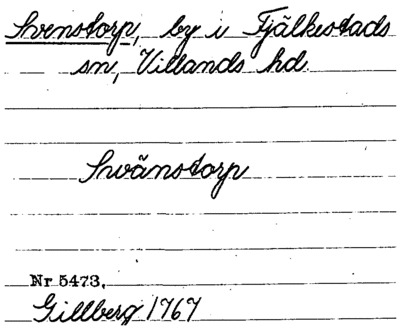 Svenstorp, by i Fjälkestads
sn, Villands hd.
Swänstorp
Nr 5473.
Gillberg 1767